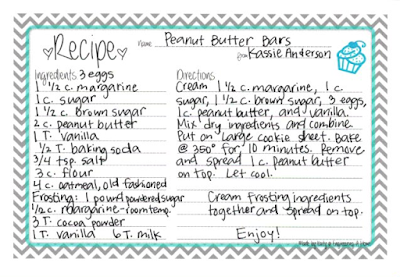 Recipe Name Peanut Butter Bars
from Kassie Anderson
Ingredients 3 eggs
1 1/2 c. margarine
1 c. sugar
1 1/2 c. brown sugar
2 c. peanut butter
1 T. vanilla
1/2 T. baking soda
3/4 tsp. salt
3 c. flour
4 c. oatmeal, old fashioned
Frosting: 1 pound powdered sugar
1/2 c. margarine-room temp.
3 T. cocoa powder
1 T. vanilla 6 T. milk
Directions
Cream 1 1/2 c. margarine, 1 c.
sugar, 1 1/2 c. brown sugar, 3 eggs,
1 c. peanut butter, and vanilla.
Mix dry ingredients and combine.
Put on large cookie sheet. Bake
@ 350° for 10 minutes. Remove
and spread 1 c. peanut butter
on top. Let cool.
Cream frosting ingredients
together and spread on top.
Enjoy!